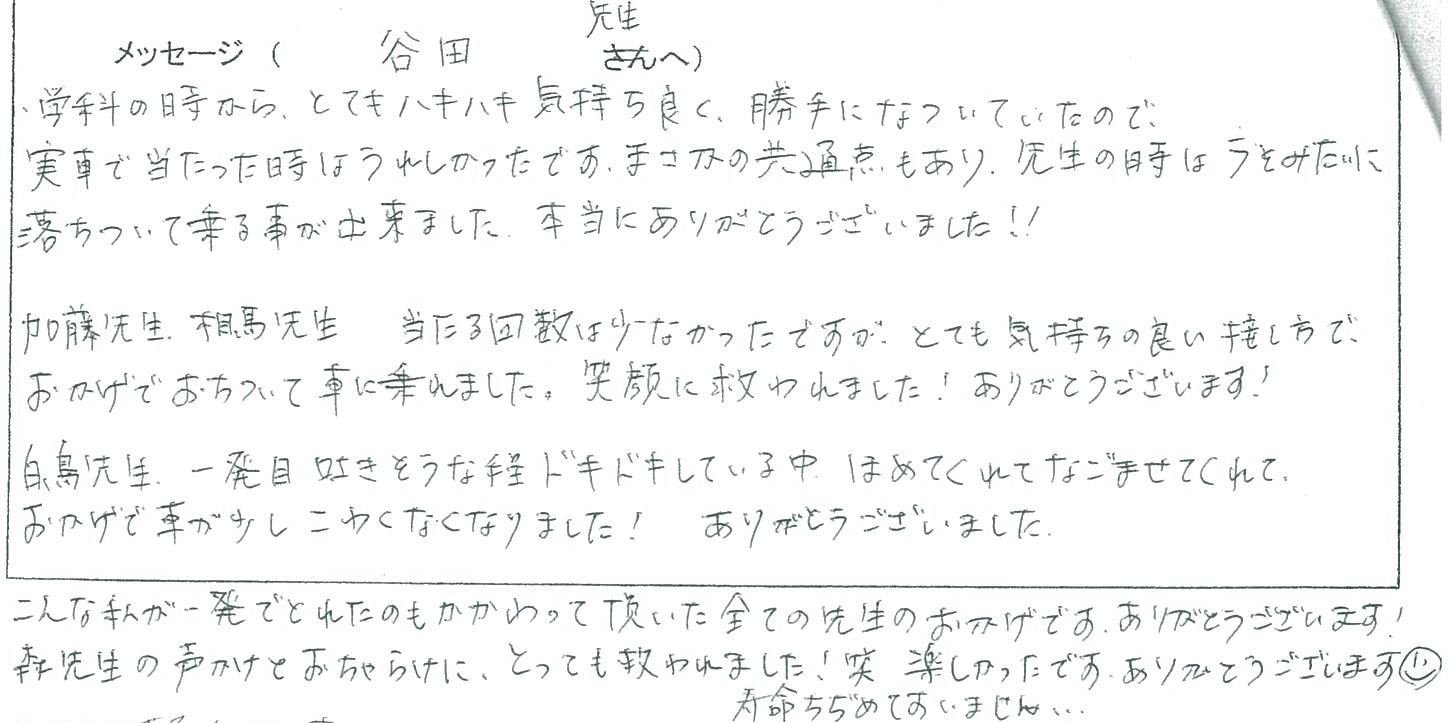 先生
メッセージ ( 谷田 さんへ)
・学科の時から、とてもハキハキ気持ち良く、勝手になついていたので、
実車で当たった時はうれしかったです。まさかの共通点もあり、先生の時はうそみたいに
落ちついて乗る事が出来ました。本当にありがとうございました!!
加藤先生、相馬先生 当たる回数は少なかったですが、とても気持ちの良い接し方で、
おかげでおちついて車に乗れました。笑顔に救われました!ありがとうございます!
白鳥先生、一発目吐きそうな程ドキドキしている中、ほめてくれてなごませてくれて、
おかげで車が少しこわくなくなりました! ありがとうございました。
こんな私が一発でとれたのもかかわって頂いた全ての先生のおかげです。ありがとうございます!
森先生の声かけとおちゃらけに、とっても救われました!笑 楽しかったです。ありがとうございます
寿命ちぢめてすいません...